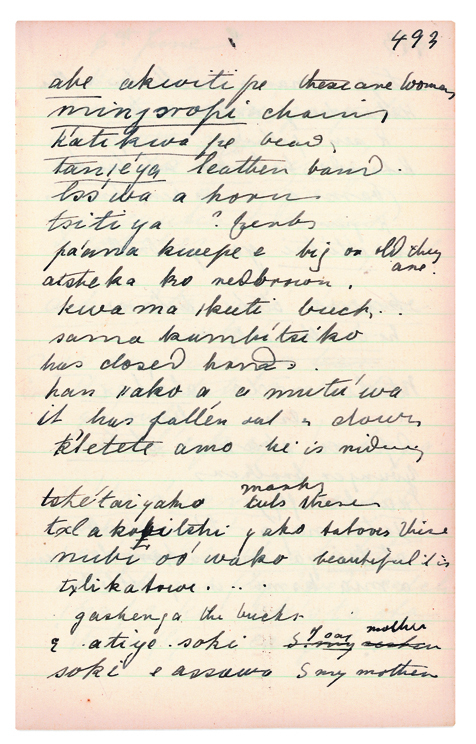 493
abe akwiti pe these are women
mingoropi chain,
katikwa pe bead,
tanieya leather band.
Issiwa a horn
tsitiya ?
paana kwepe e big or old they are.
atsheka ko redbrown.
kwama kuti buck..
sama kumbitsiko
has closed hands.
han ııako a a mutuwa
it has fallen out & down
k'letete amo he is riding
tshe'taiyako marks tuls these
yako tatoves these
nubi oo'wako beautiful it is
txlikatowe...
gashenga the bucks
e atiyo soki S. my your mother
soki e assawa S my mother